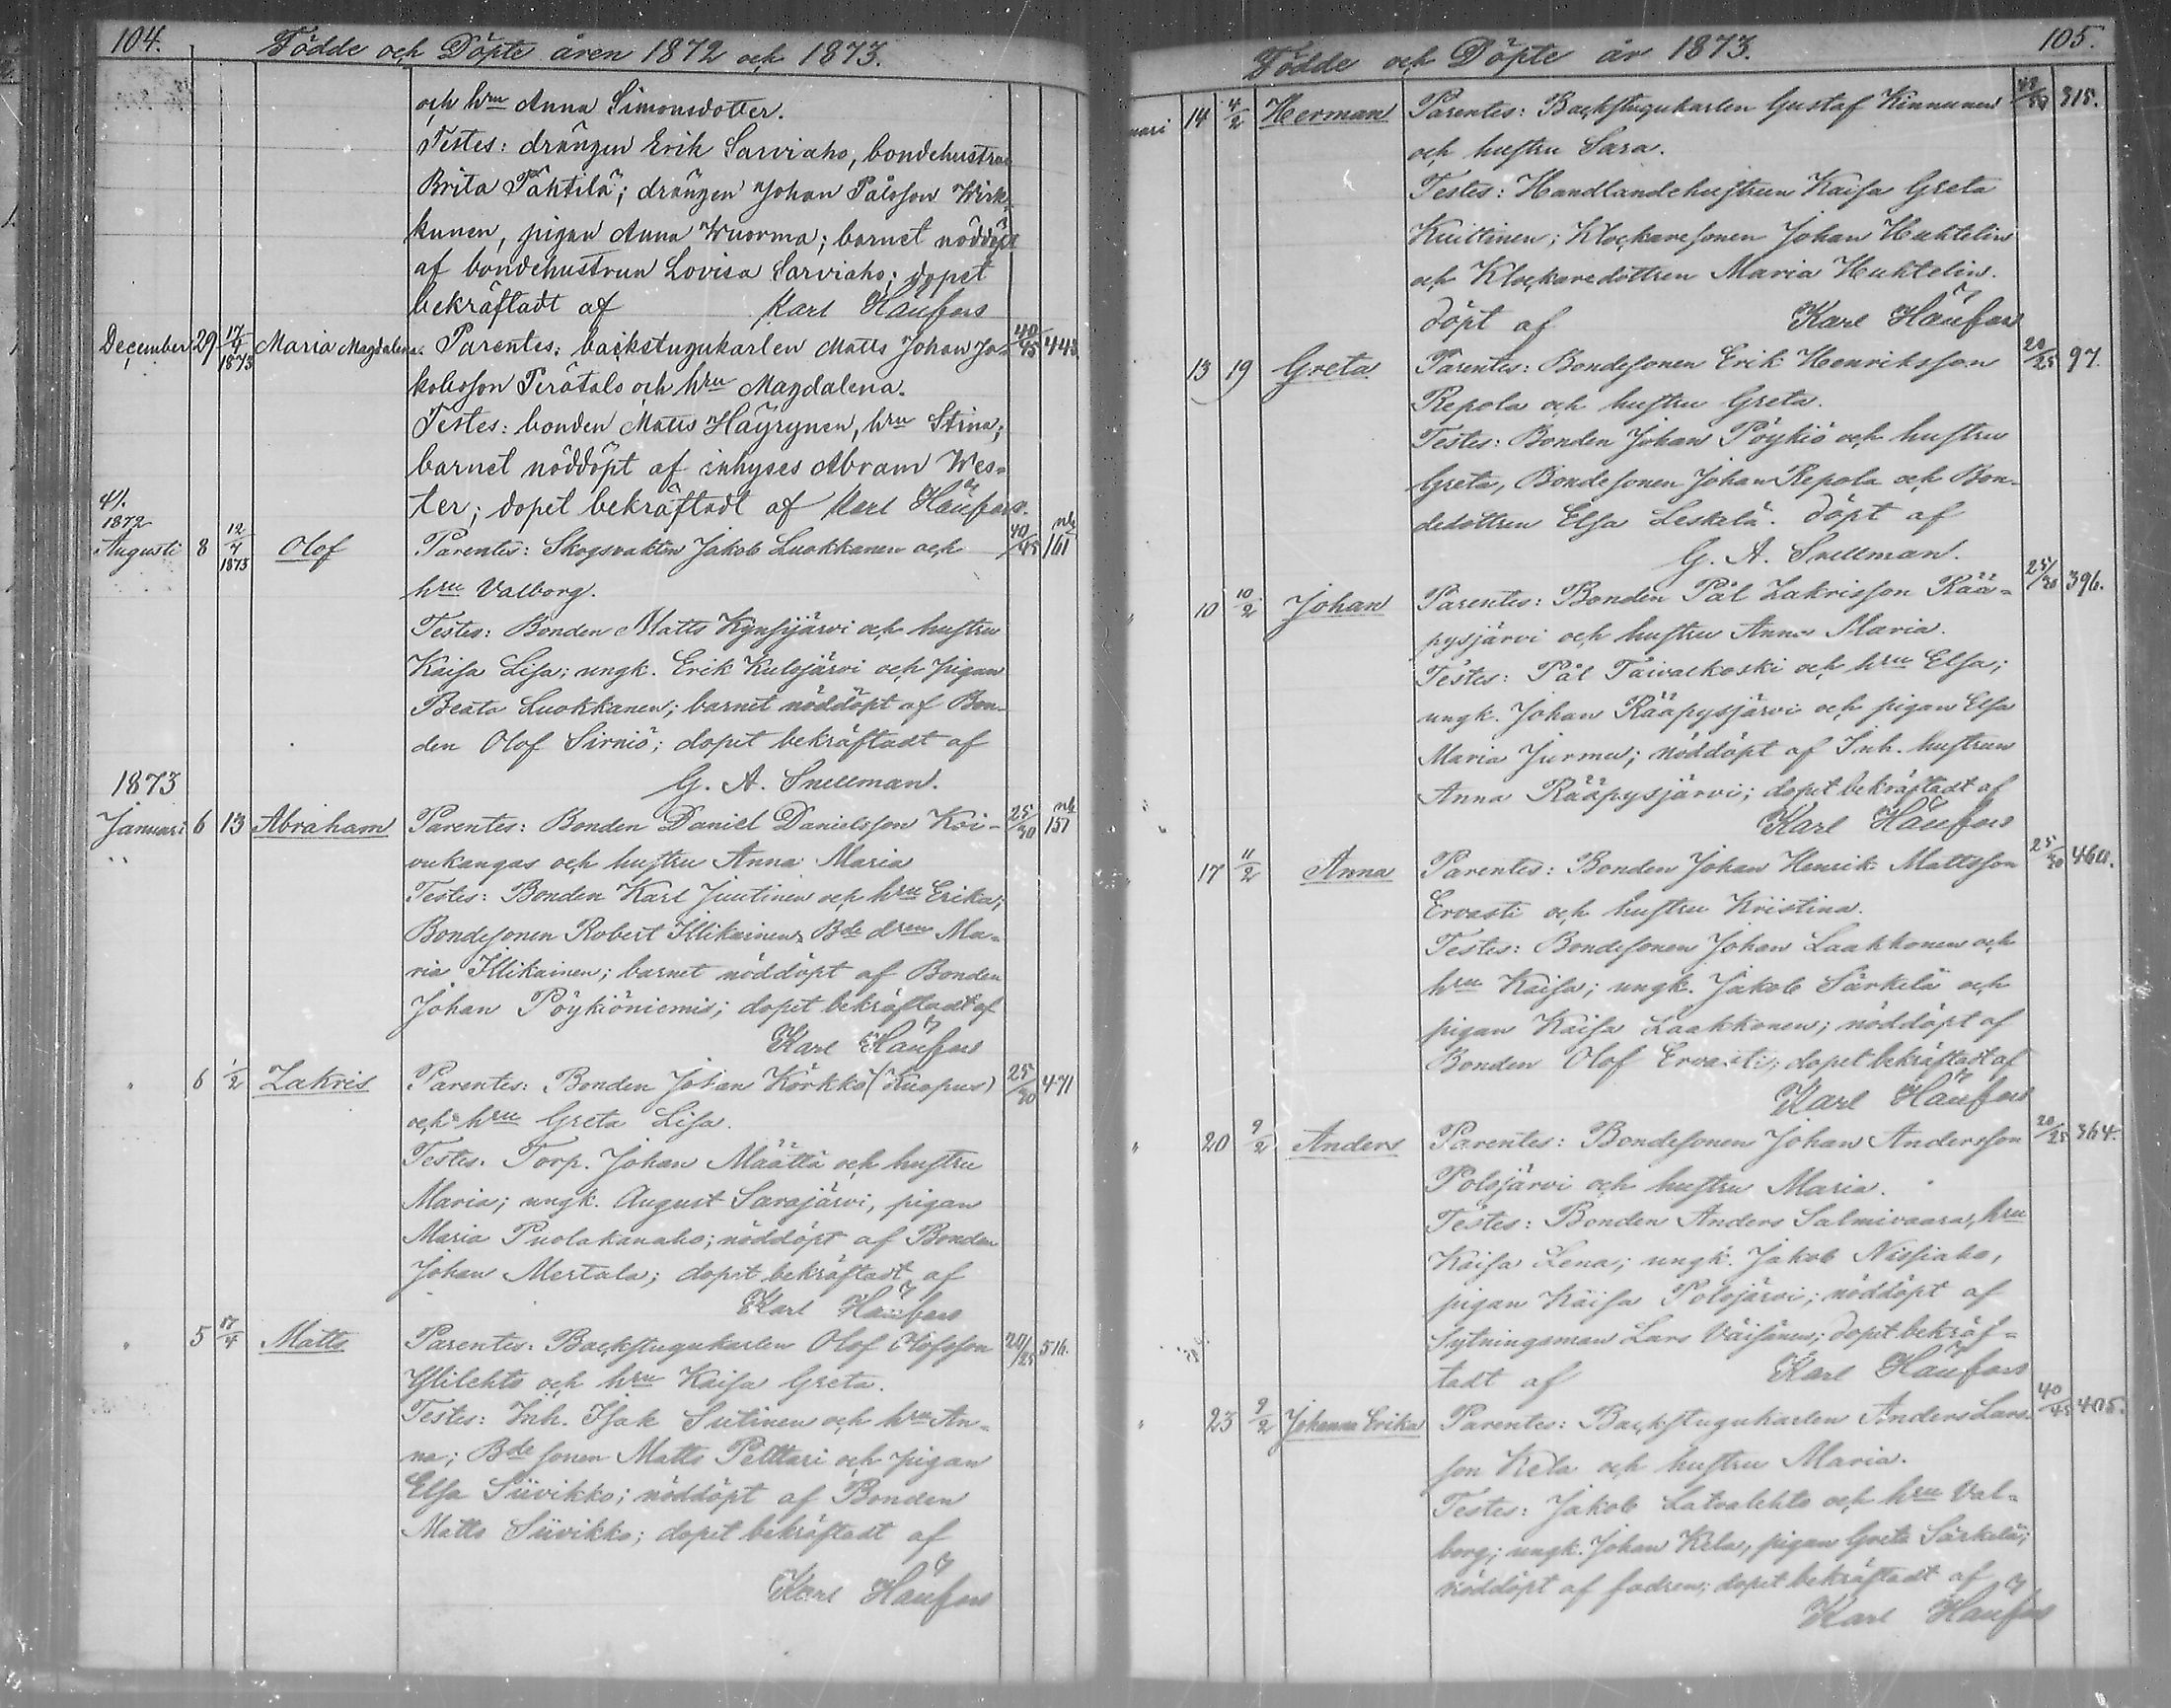 104.
Födde och Döpte åren 1872 och 1873.
och hru Anna Simonsdotter.
Testes: drängen Erik Sarviaho, bondehustrun
Brita Tähtilä; drängen Johan Pålsson Wirk-
kunen, pigan Anna Wuorma; barnet nöddöpt
af bondehustrun Lovisa Sarviaho; dopet
bekräftadt af Karl Häufors
December 29 17/4 1873 Maria Magdalena. Parentes: backstugukarlen Matts Johan Ja- 40/45 443
kobsson Perätalo och hru Magdalena.
Testes: bonden Matts Häyrynen, hru Stina;
barnet nöddöpt af inhyses Abram Wes-
ter; dopet bekräftadt af Karl Häufors.
41.
1872
Augusti 8 12/4 1873 Olof Parentes: Skogsvakten Jakob Luokkanen och 40/45 nb 161
hru Valborg.
Testes: Bonden Matts Kynsijärvi och hustru
Kaisa Lisa; ungk. Erik Kulojärvi och pigan
Beata Luokkanen; barnet nöddöpt af Bon-
den Olof Sirniö; dopet bekräftadt af
G. A. Snellman.
1873
Januari 6 13 Abraham Parentes: Bonden Daniel Danielsson Koi- 25/30 nb 151
vukangas och hustru Anna Maria
Testes: Bonden Karl Juutinen och hru Erika;
Bondesonen Robert Illikainen, Bde dren Ma-
ria Illikainen; barnet nöddöpt af Bonden
Johan Pöykiöniemis; dopet bekräftadt af
Karl Häufors
" 6 1/2 Zakris Parentes: Bonden Johan Körkkö (Kuopus) 25/30 471
och hru Greta Lisa.
Testes. Torp. Johan Määttä och hustru
Maria; ungk. August Sarajärvi, pigan
Maria Puolakanaho; nöddöpt af Bonden
Johan Mertala; dopet bekräftadt af
Karl Häufors
" 5 17/4 Matts Parentes: Backstugukarlen Olof Olofsson 20/25 516.
Ylilehto och hru Kaisa Greta.
Testes: Inh. Isak Sutinen och hru An-
na; Bde sonen Matts Pelttari och pigan
Elsa Siivikko; nöddöpt af Bonden
Matts Siivikko; dopet bekräftadt af
Karl Häufors
105.
Födde och Döpte år 1873.
nuari 14 4/2 Herman Parentes: Backstugukarlen Gustaf Kinnunen 315.
och hustru Sara.
Testes: Handlandehustrun Kaisa Greta
Kuittinen; Klockaresonen Johan Huhtelin
och Klockaredottren Maria Huhtelin.
döpt af Karl Häufors
13 19 Greta Parentes: Bondesonen Erik Henriksson 20/25 97.
Repola och hustru Greta.
Testes: Bonden Johan Pöykiö och hustru
Greta, Bondesonen Johan Repola och Bon-
dedottren Elsa Leskelä. döpt af
G. A. Snellman.
" 10 10/2 Johan Parentes: Bonden Pål Zakrisson Rää- 25/30 396.
pysjärvi och hustru Anna Maria.
Testes: Pål Taivalkoski och hru Elsa;
ungk. Johan Rääpysjärvi och pigan Elsa
Maria Jurmu; nöddöpt af Inh. hustrun
Anna Rääpysjärvi; dopet bekräftadt af
Karl Häufors
" 17 11/2 Anna Parentes: Bonden Johan Henrik Mattsson 25/30
Ervasti och hustru Kristina.
Testes: Bondesonen Johan Laakkonen och
hru Kaisa; ungk. Jakob Särkelä och
pigan Kaisa Laakkonen; nöddöpt af
Bonden Olof Ervasti; dopet bekräftadt af
Karl Häufors
" 20 9/2 Anders Parentes: Bondesonen Johan Andersson 20/25 364.
Polojärvi och hustru Maria.
Testes: Bonden Anders Salmivaara, hru
Kaisa Lena; ungk. Jakob Nissiaho,
pigan Kaisa Polojärvi; nöddöpt af
Sytningsman Lars Väisänen; dopet bekräf-
tadt af Karl Häufors
" 23 9/2 Johanna Erika Parentes: Backstugukarlen Anders Lars- 40/45 405.
son Kela och hustru Maria.
Testes: Jakob Latvalehto och hru Val-
borg; ungk. Johan Kela, pigan Greta Särkelä;
nöddöpt af fadren; dopet bekräftadt af
Karl Häufors